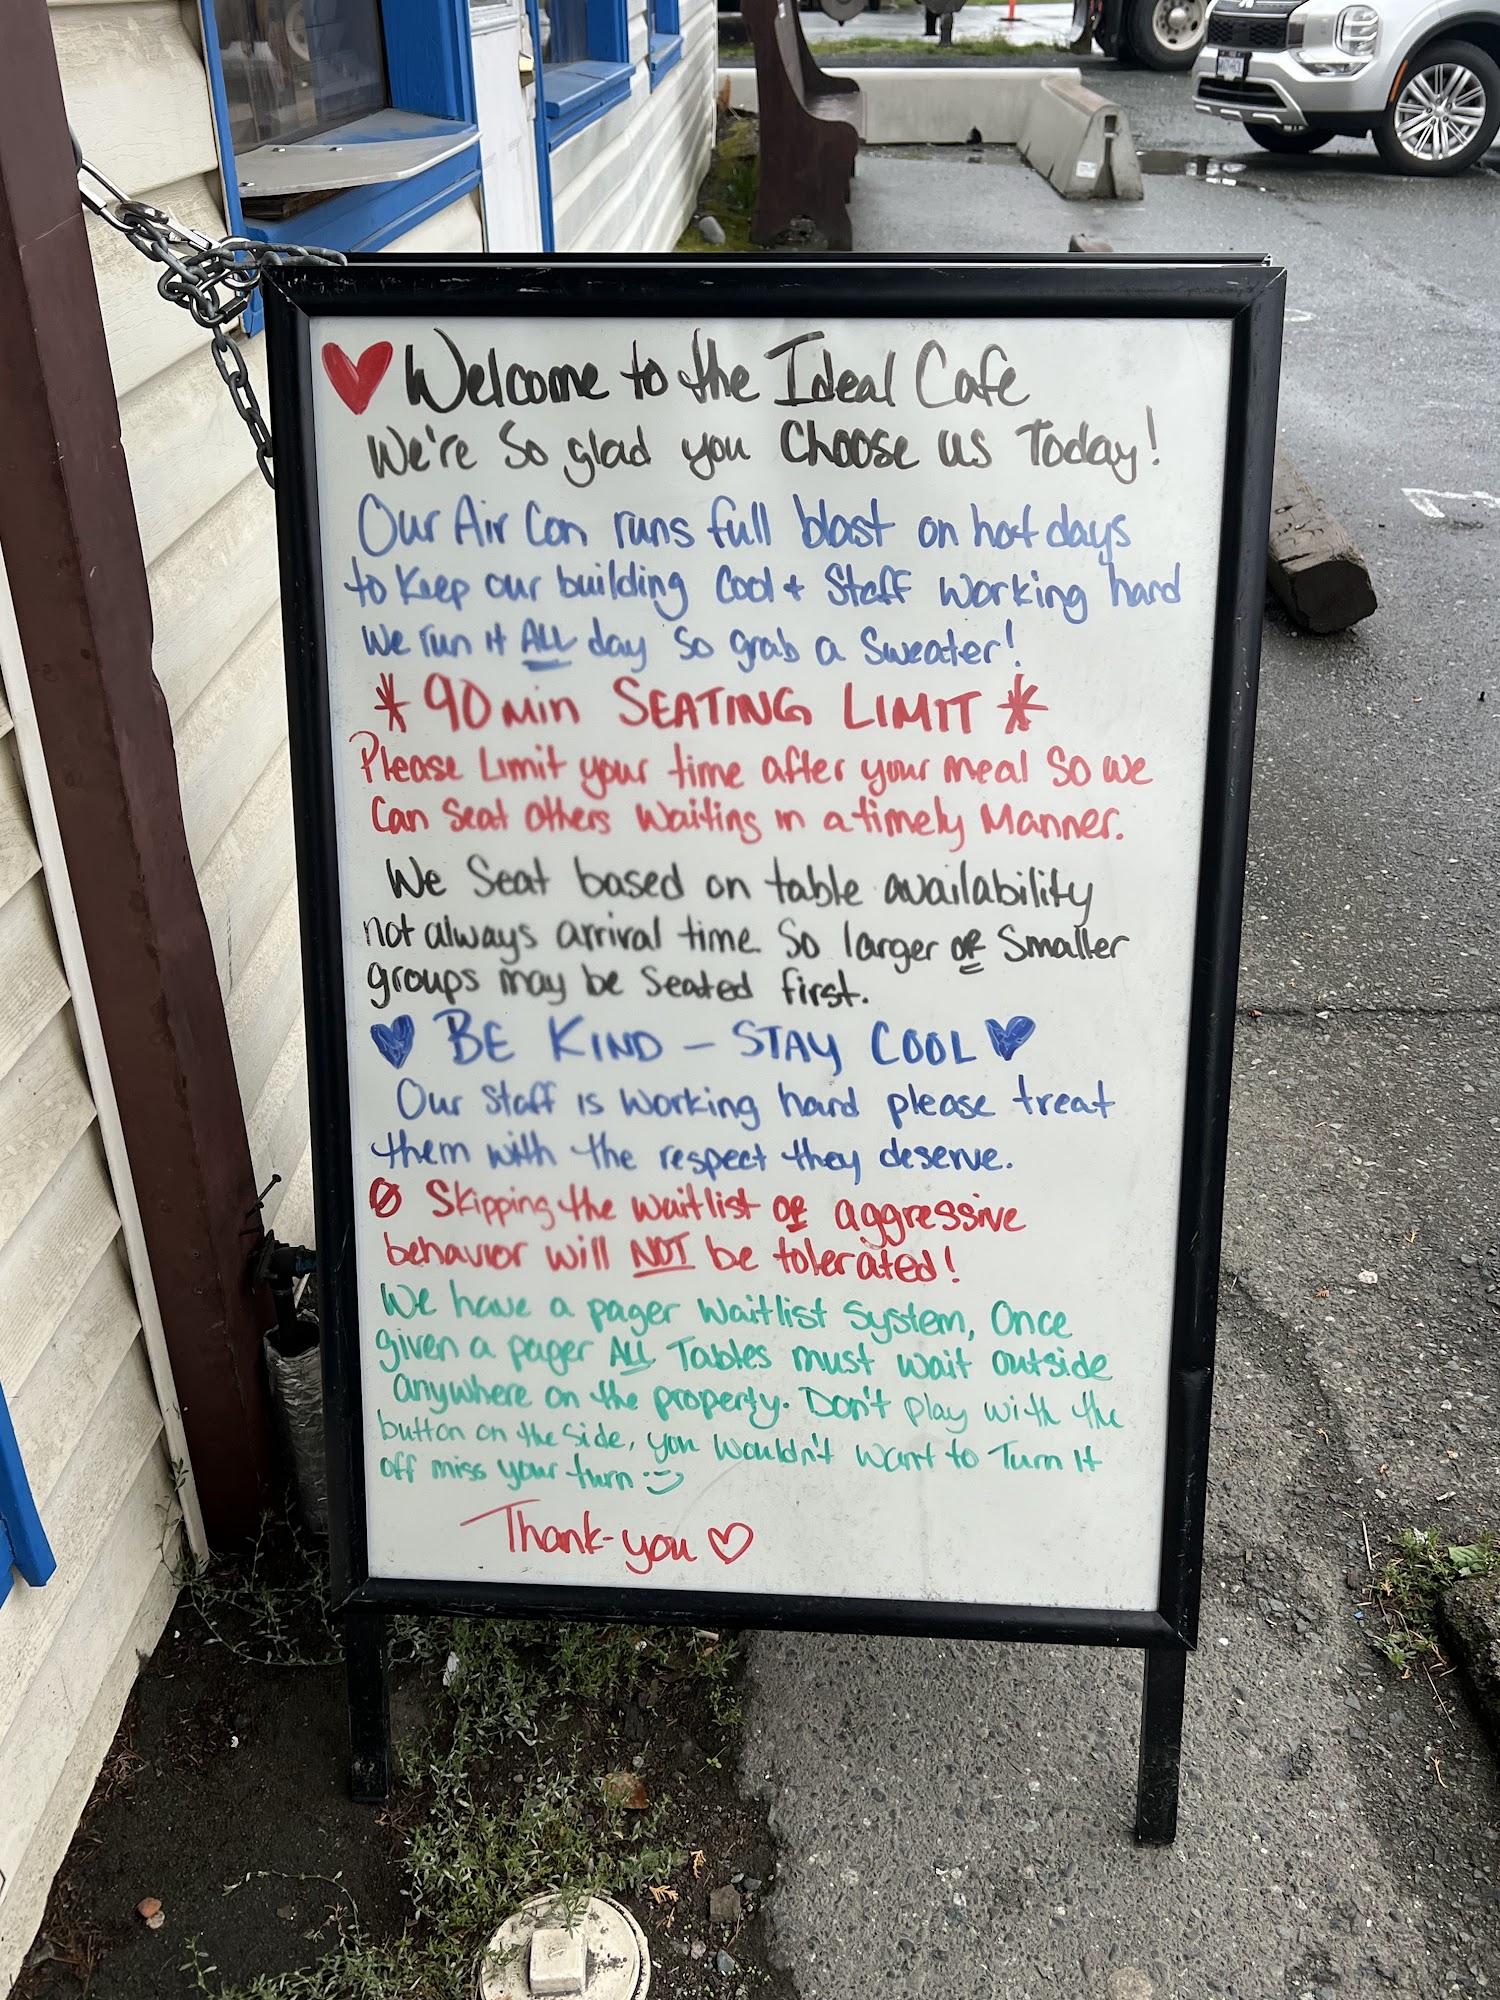 Welcome to the Ideal Cafe
We're So glad you Choose us Today!
Our Air Con runs full blast on hot days
to Keep our building Cool + Staff Working hard
We run it ALL day So grab a Sweater!
* 90 min SEATING LIMIT *
Please Limit your time after your meal So we
Can Seat Others Waiting in a timely Manner.
We Seat based on table availability
not always arrival time So larger OR Smaller
groups may be Seated first.
BE KIND - STAY COOL
Our Staff is Working hard please treat
them with the respect they deserve.
Skipping the waitlist OR aggressive
behavior will NOT be tolerated!
We have a pager Waitlist System, Once
given a pager ALL Tables must wait outside
anywhere on the property. Don't play with the
button on the Side, you wouldn't want to Turn It
off miss your turn :)
Thank-you ♡